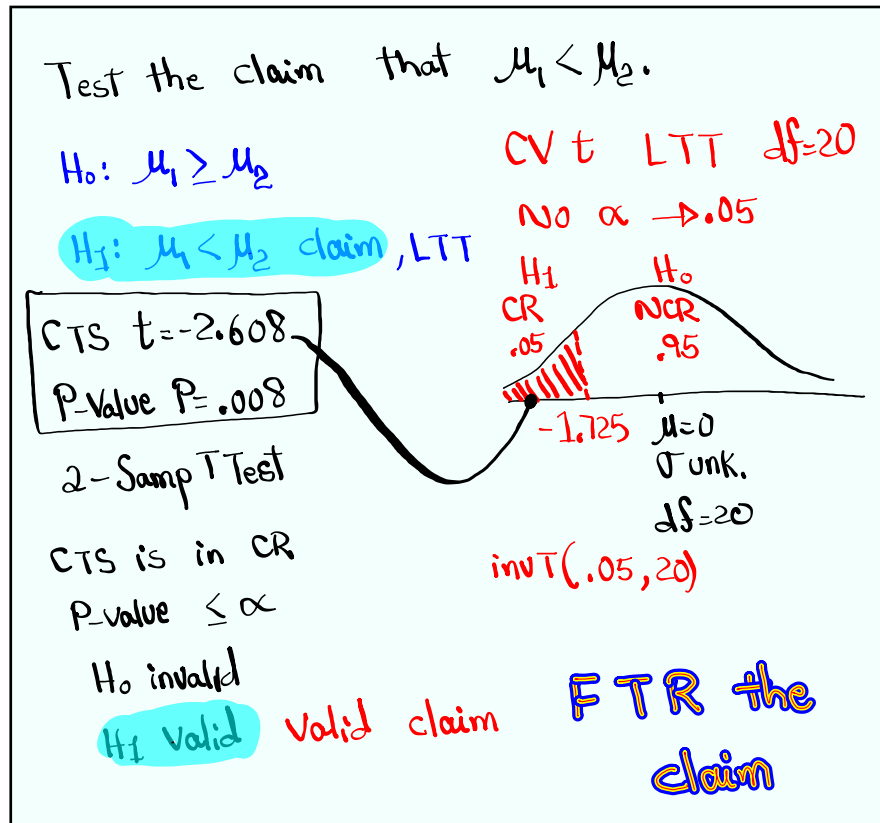 Test the claim that μ₁ < μ₂.
H₀: μ₁ ≥ μ₂
H₁: μ₁ < μ₂ claim, LTT
CTS t=-2.608
P-Value P=.008
2-Samp T Test
CTS is in CR
P-value ≤ α
H₀ invalid
H₁ Valid Valid claim
CV t LTT df=20
No α → .05
H₁ H₀
CR NCR
.05 .95
-1.725 μ=0
σ unk.
df=20
invT(.05, 20)
FTR the
claim